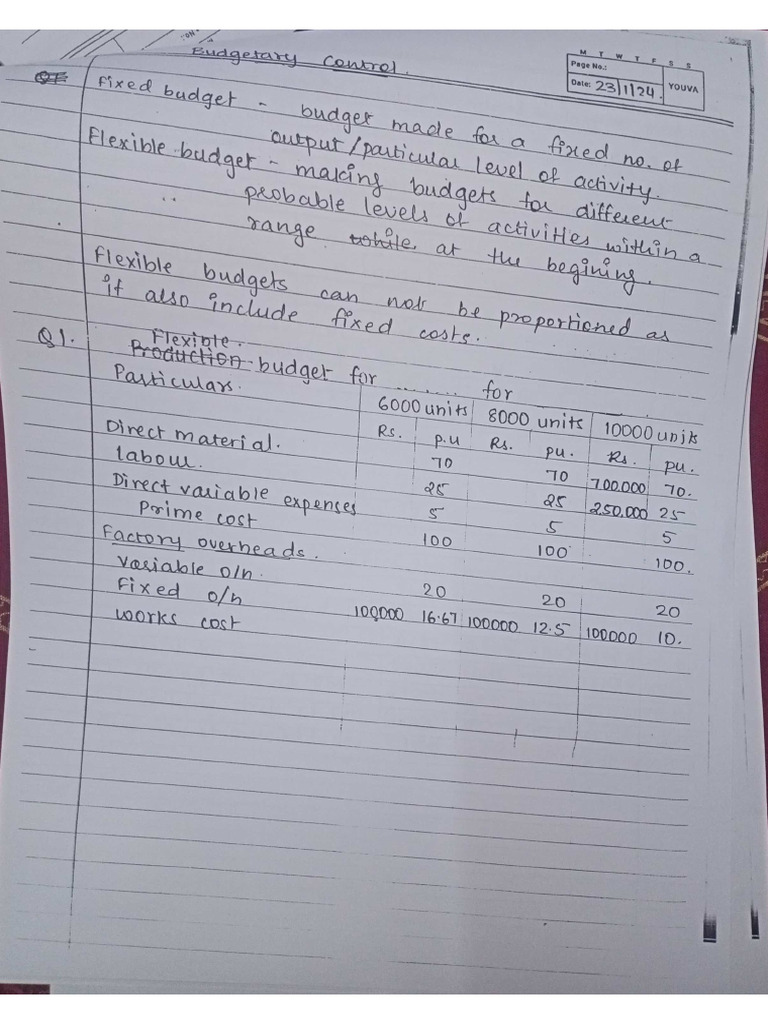 Budgetary Control.
M T W T F S S
Page No.:
Date: 23/1/24. YOUVA
Fixed budget - budget made for a fixed no. of
output/particular level of activity.
Flexible budget - making budgets for different
probable levels of activities within a
range while at the begining.
Flexible budgets can not be proportioned as
it also include fixed costs.
Q1. Flexible.
Production budget for ......... for
Particulars. 6000 units 8000 units 10000 units
Rs. p.u Rs. pu. Rs. pu.
Direct material. 70 70 700.000 70.
labour. 25 25 250.000 25
Direct variable expenses 5 5 5
Prime cost 100 100 100.
Factory overheads.
Variable o/h. 20 20 20
Fixed o/h 100000 16.67 100000 12.5 100000 10.
Works cost